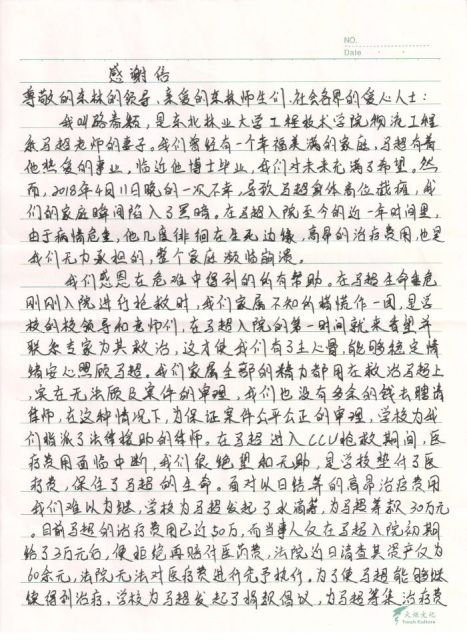 NO.
Date
感谢信
尊敬的东林的领导、亲爱的东林师生们、社会各界的爱心人士：
我叫路嘉颖，是东北林业大学工程技术学院物流工程
系马超老师的妻子。我们曾经有一个幸福美满的家庭，马超有着
他热爱的事业，临近他博士毕业，我们对未来充满了希望。然
而，2018年4月11日晚的一次不幸，导致马超身体高位截瘫，我
们的家庭瞬间陷入了黑暗。在马超入院至今的近一年时间里，
由于病情危重，他几度徘徊在生死边缘，高昂的治疗费用，也是
我们无力承担的，整个家庭濒临崩溃。
我们感恩在危难中得到的所有帮助。在马超生命垂危
刚刚入院进行抢救时，我们家属不知所措慌作一团，是学
校的校领导和老师们，在马超入院的第一时间就来看望并
联系专家为其救治，这才使我们有了主心骨，能够稳定情
绪安心照顾马超。我们家属全部的精力都用在救治马超上
，实在无法顾及案件的审理，我们也没有多余的钱去聘请
律师，在这种情况下，为保证案件公平公正的审理，学校为我
们指派了法律援助的律师。在马超进入CCU抢救期间，医
疗费用面临中断，我们很绝望和无助，是学校垫付了医
疗费，保住了马超的生命。面对以日结算的高昂治疗费用
我们难以为继，学校为马超发起了水滴筹，为马超筹款30万元
。目前马超的治疗费用已近50万，而当事人仅在马超入院初期
给了3万元后，便拒绝再赔付医药费，法院近日清查其资产仅为
60余元，法院无法对医疗费进行先予执行。为了使马超能够继
续得到治疗，学校为马超发起了捐款倡议，为马超筹集治疗费
天炬文化
Torch Kulture